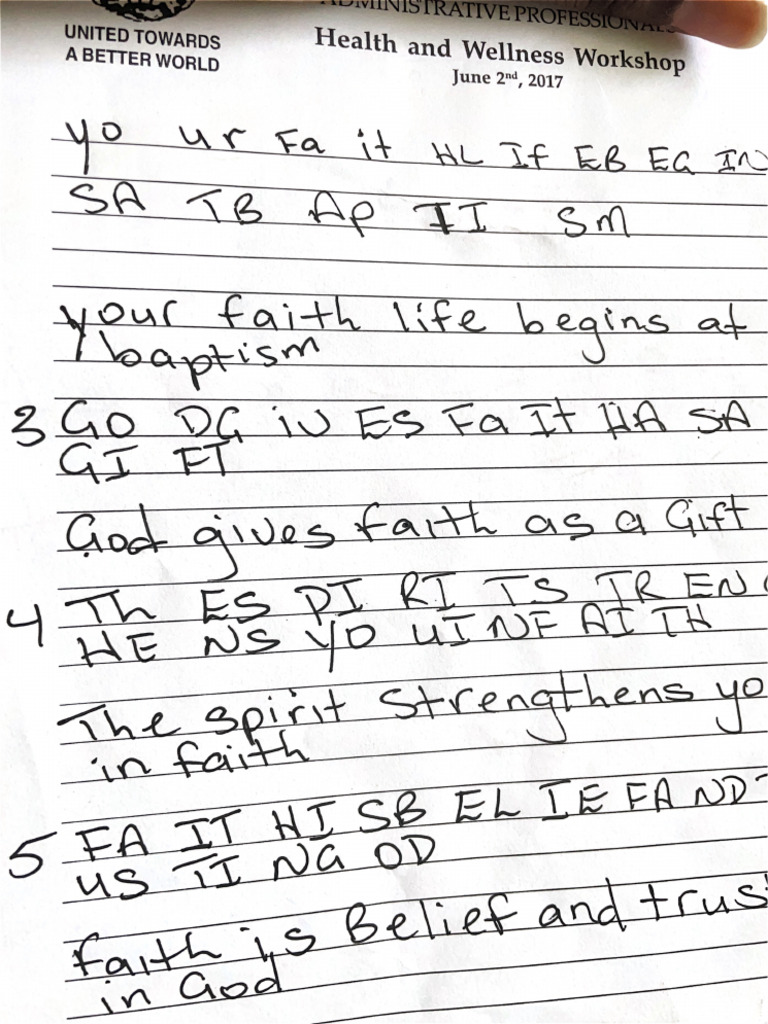 ADMINISTRATIVE PROFESSIONALS
UNITED TOWARDS
A BETTER WORLD
Health and Wellness Workshop
June 2nd, 2017
yo ur Fa it HL If EB EG IN
SA TB Ap TI SM
your faith life begins at
baptism
3 GO DG iV ES Fa It HA SA
GI FT
God gives faith as a Gift
4 Th ES PI RI TS TR EN
HE NS YO UI NF AI TH
The spirit strengthens yo
in faith
5 FA IT HI SB EL IE FA ND
US TI NG OD
faith is Belief and trus
in God